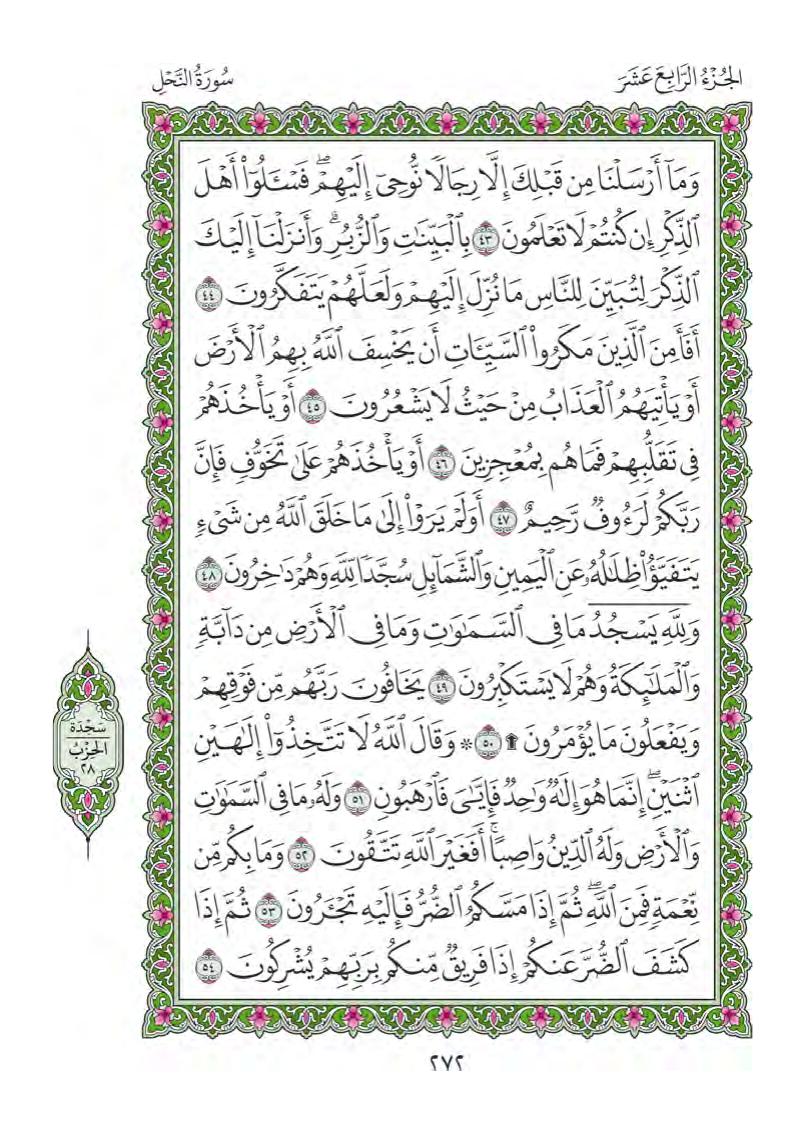 الجُزْءُ الرَّابِعَ عَشَرَ
سُورَةُ النَّحْلِ
وَمَآ أَرْسَلْنَا مِن قَبْلِكَ إِلَّا رِجَالًا نُّوحِىٓ إِلَيْهِمْۖ فَسْـَٔلُوٓاْ أَهْلَ
ٱلذِّكْرِ إِن كُنتُمْ لَا تَعْلَمُونَ ٤٣ بِٱلْبَيِّنَٰتِ وَٱلزُّبُرِۗ وَأَنزَلْنَآ إِلَيْكَ
ٱلذِّكْرَ لِتُبَيِّنَ لِلنَّاسِ مَا نُزِّلَ إِلَيْهِمْ وَلَعَلَّهُمْ يَتَفَكَّرُونَ ٤٤
أَفَأَمِنَ ٱلَّذِينَ مَكَرُواْ ٱلسَّيِّـَٔاتِ أَن يَخْسِفَ ٱللَّهُ بِهِمُ ٱلْأَرْضَ
أَوْ يَأْتِيَهُمُ ٱلْعَذَابُ مِنْ حَيْثُ لَا يَشْعُرُونَ ٤٥ أَوْ يَأْخُذَهُمْ
فِى تَقَلُّبِهِمْ فَمَا هُم بِمُعْجِزِينَ ٤٦ أَوْ يَأْخُذَهُمْ عَلَىٰ تَخَوُّفٍ فَإِنَّ
رَبَّكُمْ لَرَءُوفٌ رَّحِيمٌ ٤٧ أَوَلَمْ يَرَوْاْ إِلَىٰ مَا خَلَقَ ٱللَّهُ مِن شَىْءٍ
يَتَفَيَّؤُاْ ظِلَٰلُهُۥ عَنِ ٱلْيَمِينِ وَٱلشَّمَآئِلِ سُجَّدًا لِّلَّهِ وَهُمْ دَٰخِرُونَ ٤٨
وَلِلَّهِ يَسْجُدُ مَا فِى ٱلسَّمَٰوَٰتِ وَمَا فِى ٱلْأَرْضِ مِن دَآبَّةٍ
وَٱلْمَلَٰٓئِكَةُ وَهُمْ لَا يَسْتَكْبِرُونَ ٤٩ يَخَافُونَ رَبَّهُم مِّن فَوْقِهِمْ
وَيَفْعَلُونَ مَا يُؤْمَرُونَ ۩ ٥٠ * وَقَالَ ٱللَّهُ لَا تَتَّخِذُوٓاْ إِلَٰهَيْنِ
ٱثْنَيْنِۖ إِنَّمَا هُوَ إِلَٰهٌ وَٰحِدٌ فَإِيَّٰىَ فَٱرْهَبُونِ ٥١ وَلَهُۥ مَا فِى ٱلسَّمَٰوَٰتِ
وَٱلْأَرْضِ وَلَهُ ٱلدِّينُ وَاصِبًاۚ أَفَغَيْرَ ٱللَّهِ تَتَّقُونَ ٥٢ وَمَا بِكُم مِّن
نِّعْمَةٍ فَمِنَ ٱللَّهِۖ ثُمَّ إِذَا مَسَّكُمُ ٱلضُّرُّ فَإِلَيْهِ تَجْـَٔرُونَ ٥٣ ثُمَّ إِذَا
كَشَفَ ٱلضُّرَّ عَنكُمْ إِذَا فَرِيقٌ مِّنكُم بِرَبِّهِمْ يُشْرِكُونَ ٥٤
سَجْدَة
الحِزْبُ
٢٨
٢٧٢